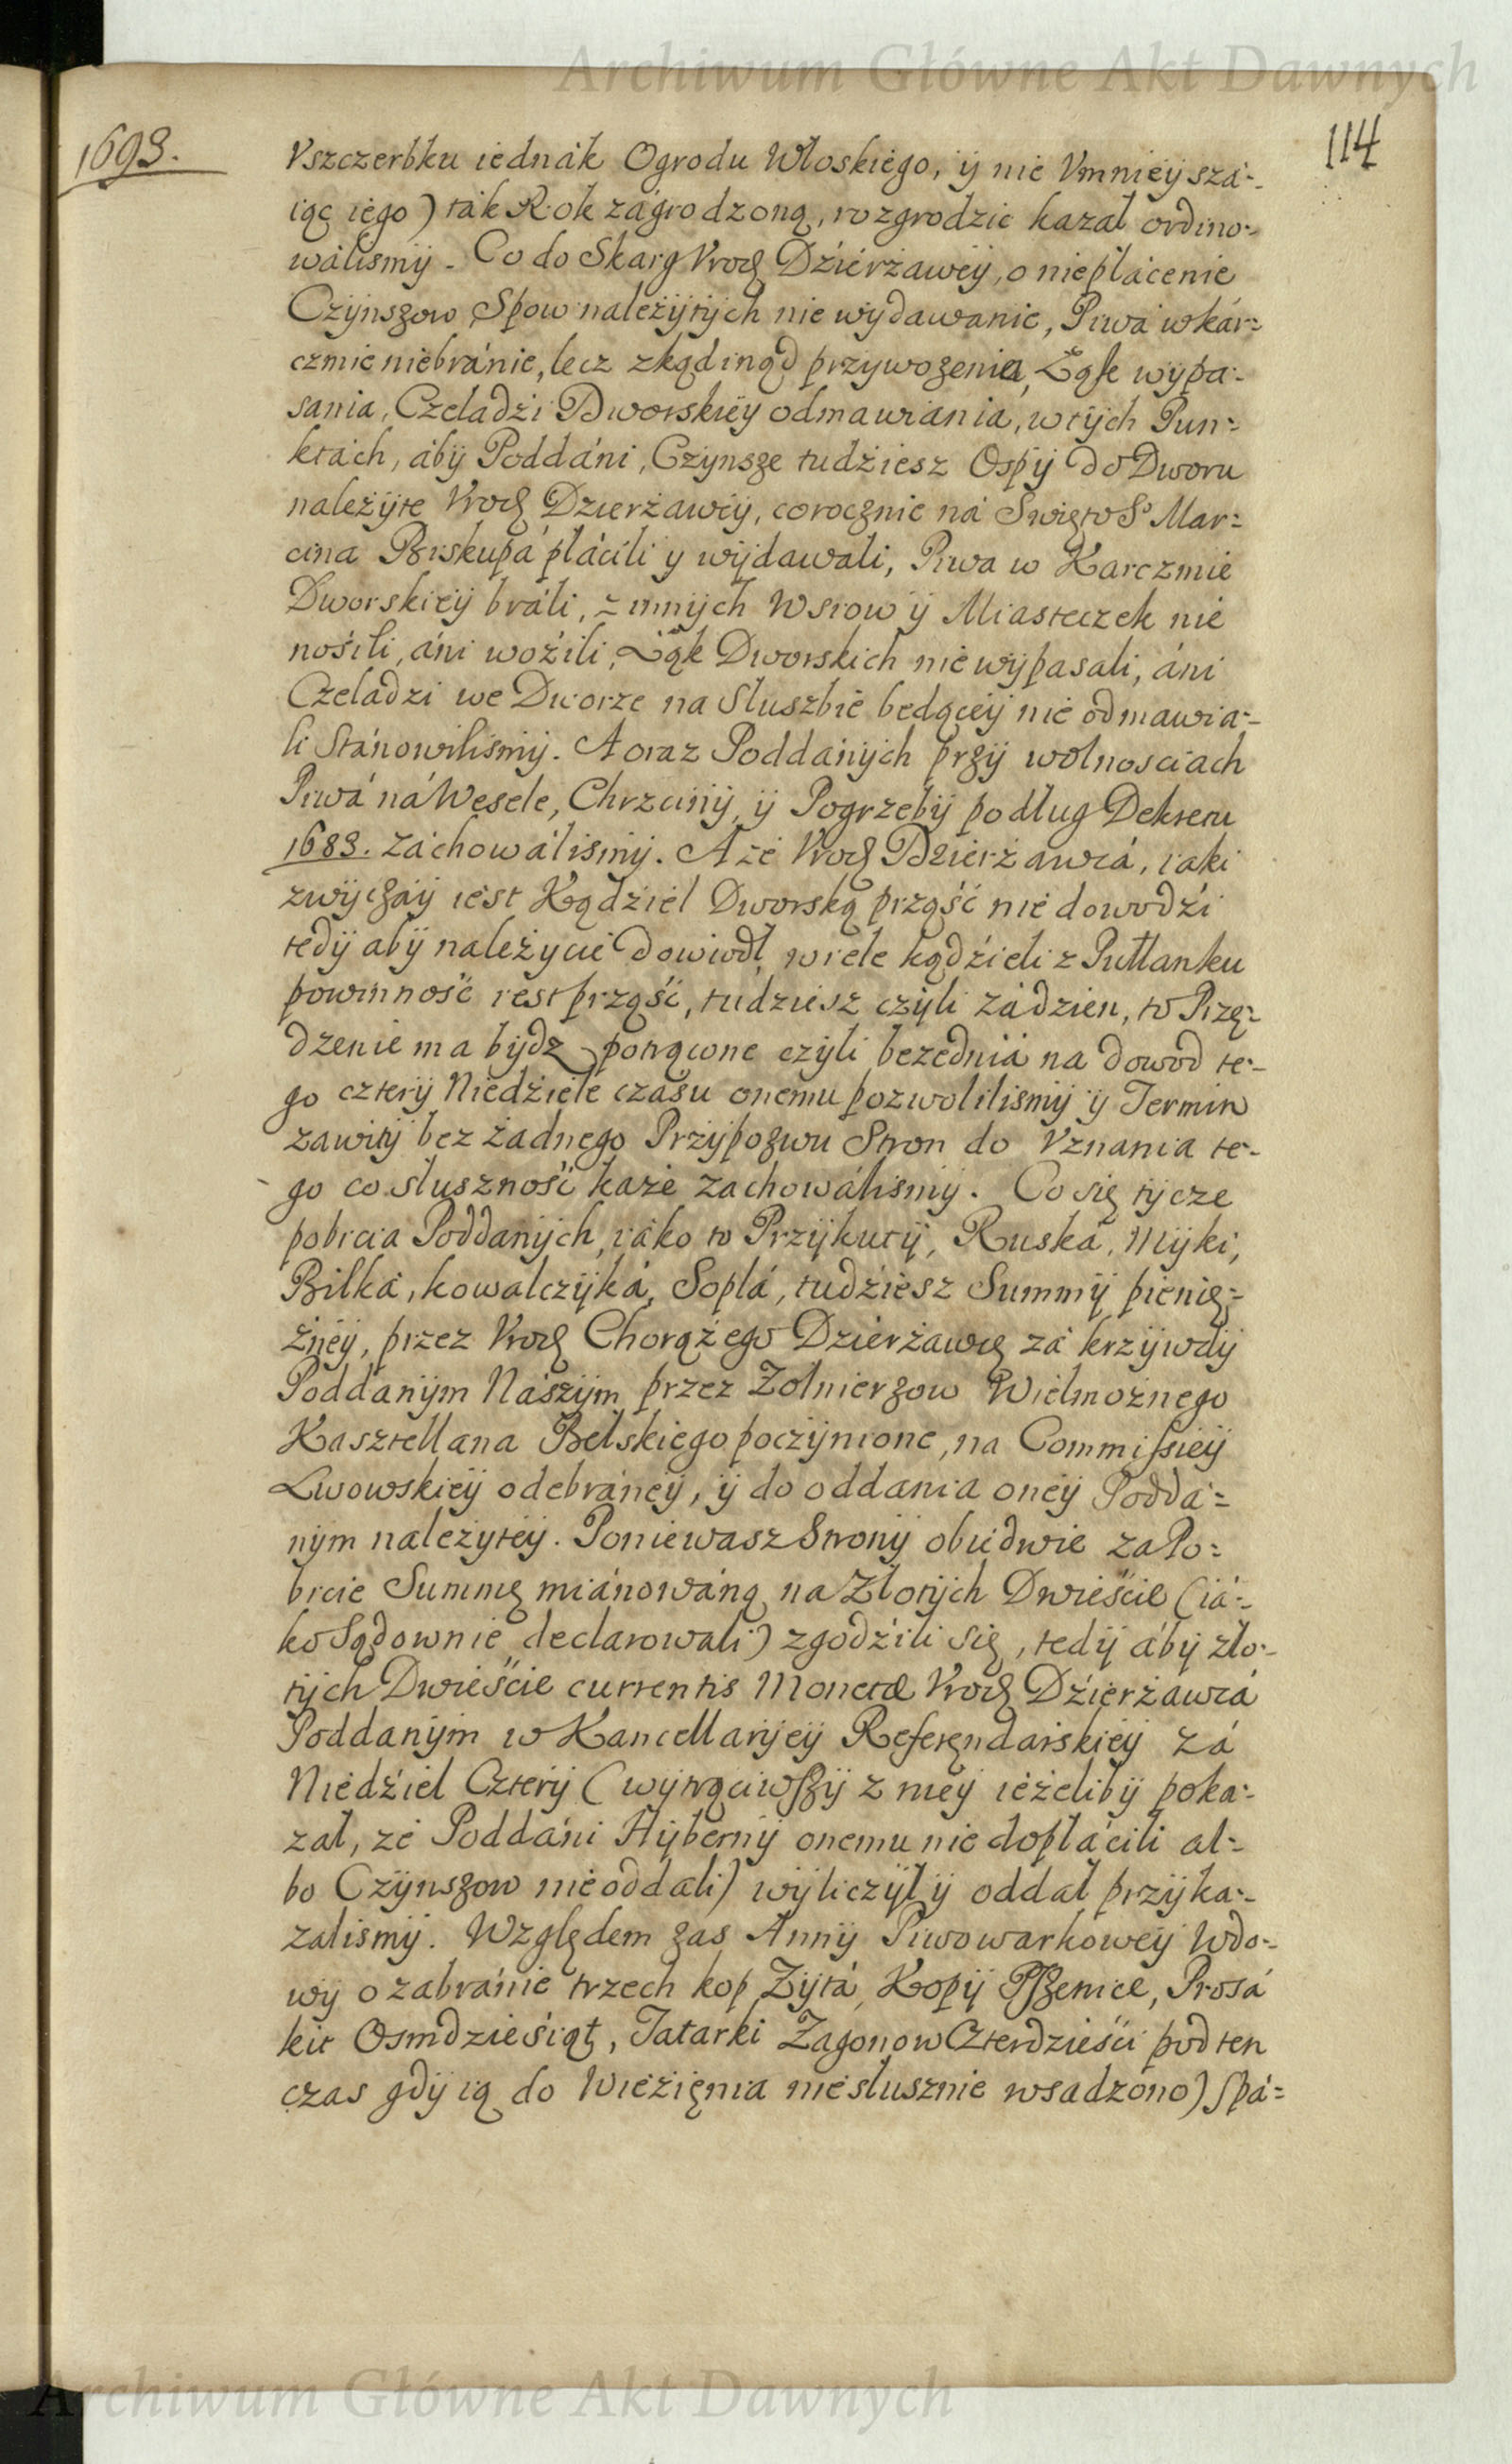 Archiwum Główne Akt Dawnych
1693.
114
Vszczerbku iednák Ogrodu Włoskiego, ÿ nie Vmnieÿszá-
iąc iego) ták Rok zágrodzoną, rozgrodzic kazał ordino-
wálismÿ. Co do Skarg Vrodz Dźierżawcÿ, o niepłácenie
Czÿnszow Spow należÿtÿch nie wÿdawanie, Piwá wkár=
czmie niebránie, lecz zkądinąd przywozenia, Łąk wÿpa-
sania, Czeladźi Dworskiéÿ odmawiania, wtÿch Pun=
ktách, ábÿ Poddáni, Czÿnsze tudźiesz Ospÿ do Dworu
należÿte Vrodz Dzierżawcÿ, corocznie ná Swięto So Mar=
cina Biskupá płáćili y wÿdawali, Piwa w Karczmie
Dworskiéÿ bráli, z innÿch Wsiow ÿ Miasteczek nie
nośili, áni woźili, Łąk Dworskich nie wÿpasali, áni
Czeladzi we Dworze na Słuszbie będąceÿ nie odmawia-
li Stánowilismÿ. A oraz Poddánÿch przÿ wolnosciach
Piwá ná Wesele, Chrzcinÿ, ÿ Pogrzebÿ podług Dekretu
1683. záchowálismÿ. A że Vrodz Dzierżawcá, iaki
zwÿczaÿ iest Kądźiel Dworską prząść nie dowodźi
tedÿ abÿ należycie dowiodł, wiele kądźieli z Pułłanku
powinność iest prząść, tudziesz czÿli zádzien, to Przę-
dzenie ma bÿdz potrącone czÿli bezednia na dowod te-
go czterÿ Niedźiele czasu onemu pozwolilismÿ ÿ Termin
zawitÿ bez żadnego Przÿpozwu Stron do Vznania te-
go co słuszność każe zachowálismÿ. Co się tÿcze
pobicia Poddanÿch, iáko to Przÿkutÿ, Ruská, Mÿki,
Bilká, kowalczÿká, Soplá, tudźiesz Summÿ pienię=
żneÿ, przez Vrodz Chorążego Dzierżawcę zá krzÿwdÿ
Poddánÿm Nászÿm przez Żołnierzow Wielmożnego
Kasztellana Bełskiego poczÿnione, na Commissieÿ
Lwowskieÿ odebráneÿ, ÿ do oddania oneÿ Poddá=
nÿm należyteÿ. Poniewasz Stronÿ obiedwie za Po=
bicie Summę miánowáną na Złotÿch Dwieście (iá-
ko Sądownie declarowali) zgodźili się, tedÿ ábÿ zło-
tÿch Dwieście currentis Monetæ Vrodz Dźierżawcá
Poddanÿm w Kancellarÿeÿ Referendarskiéÿ zá
Niedźiel Czterÿ (wÿtrąciwszÿ z nieÿ ieżelibÿ poka-
zał, że Poddáni Hÿbernÿ onemu nie dopłácili al=
bo Czÿnszow nie oddali) wÿliczÿł ÿ oddał przÿka-
zalismÿ. Względem zas Annÿ Piwowarkoweÿ Wdo-
wÿ o zabránie trzech kop Żÿtá, Kopÿ Pszenice, Prosá
kit Osmdzieśiąt, Tatarki Zagonow Czterdzieści pod ten
czas gdÿ ią do Wieźięnia niesłusznie wsadzono) spá=
Archiwum Główne Akt Dawnych